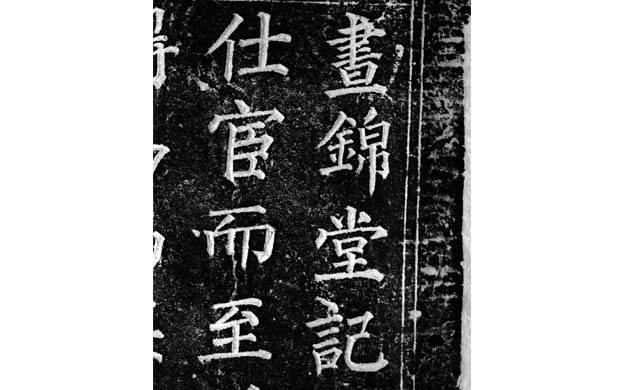 晝錦堂記
仕宦而至